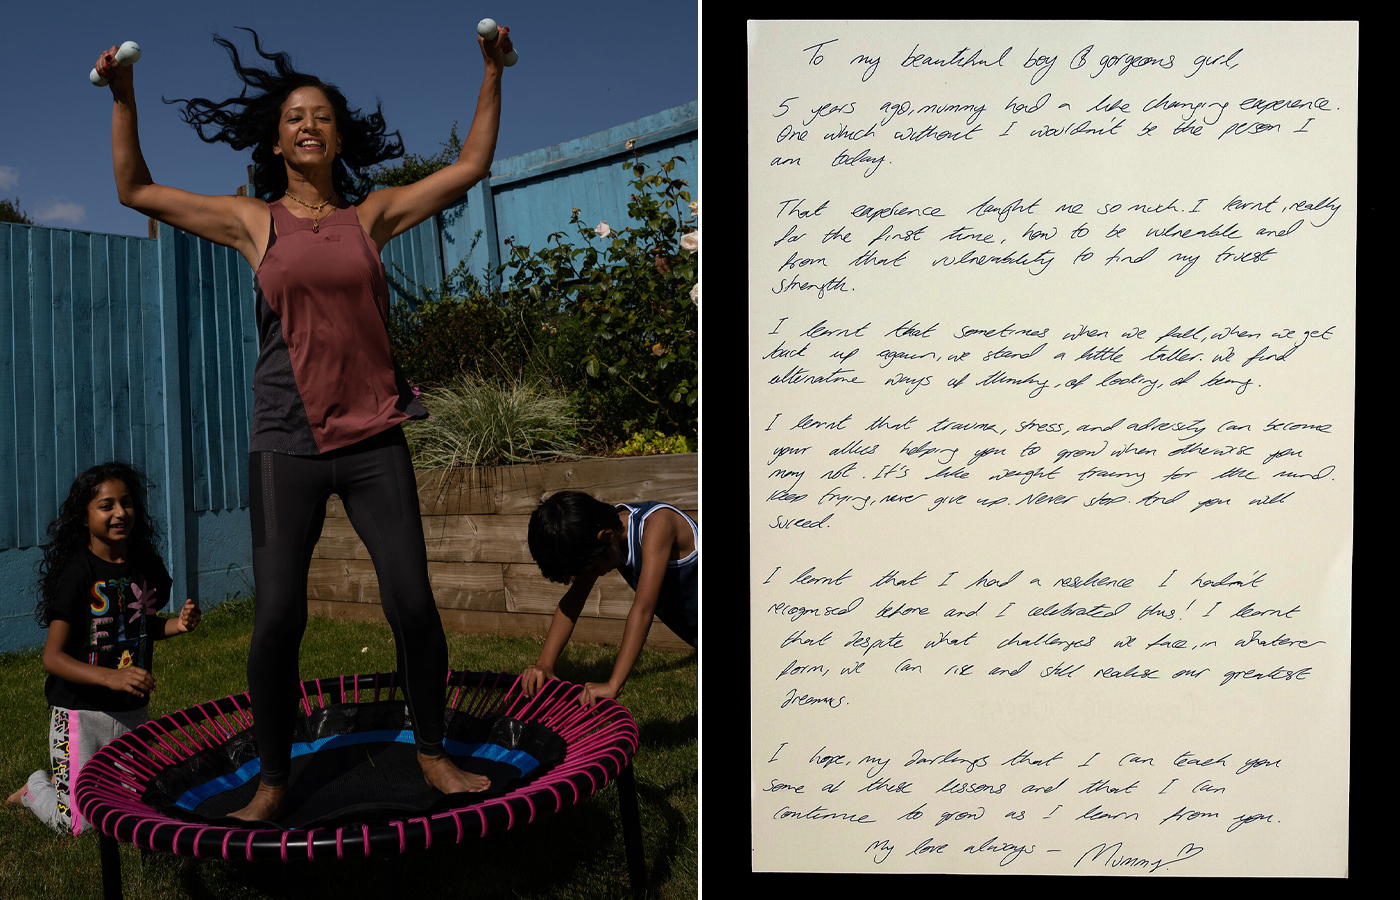 To my beautiful boy & gorgeous girl,
5 years ago, mummy had a life changing experience.
One which without I wouldn't be the person I
am today.
That experience taught me so much. I learnt, really
for the first time, how to be vulnerable and
from that vulnerability to find my truest
strength.
I learnt that sometimes when we fall, when we get
back up again, we stand a little taller. We find
alternative ways of thinking, of looking, of being.
I learnt that trauma, stress, and adversity can become
your allies helping you to grow when otherwise you
may not. It's like weight training for the mind.
Keep trying, never give up. Never stop. And you will
succeed.
I learnt that I had a resilience I hadn't
recognised before and I celebrated this! I learnt
that despite what challenges we face, in whatever
form, we can rise and still realise our greatest
dreams.
I hope, my darlings that I can teach you
some of these lessons and that I can
continue to grow as I learn from you.
My love always – Mummy ♡